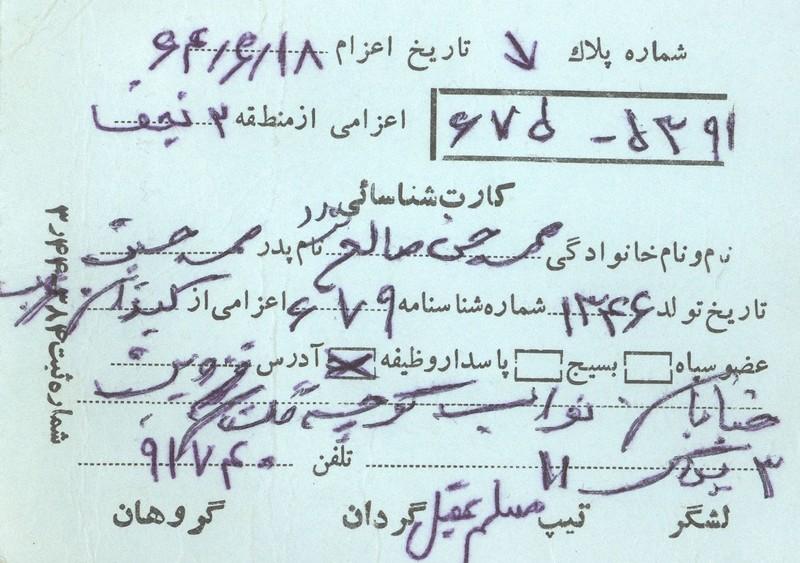 شماره پلاك تاریخ اعزام ۶۴/۶/۱۸
۶۷۵ - ۵۳۹۱ اعزامی ازمنطقه ۳ نجف
کارت‌شناسائی
نام‌ونام‌خانوادگی محمدحسن صالح نام پدر محمد حسین
تاریخ‌تولد ۱۳۴۶ شماره‌شناسنامه ۶۷۹ اعزامی‌از
عضوسپاه بسیج پاسداروظیفه آدرس قزوین
خیابان نواب کوچه
۳ پلاک ۱۱ تلفن ۹۱۷۴۰
لشگر تیپ گردان مسلم عقیل گروهان
شماره ثبت